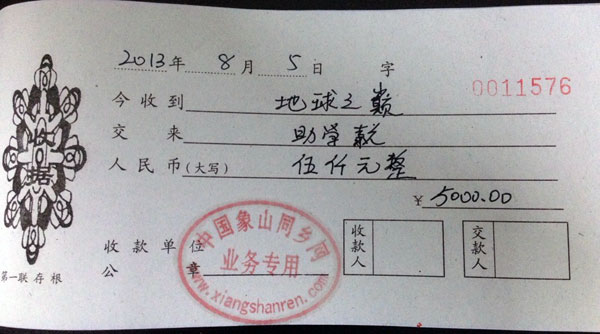 2013年 8月 5日 字
0011576
收据
今收到 地球之巅
交来 助学款
人民币(大写) 伍仟元整
¥ 5000.00
收款单位
公章
中国象山同乡网
业务专用
www.xiangshanren.com
收款人
交款人
第一联存根